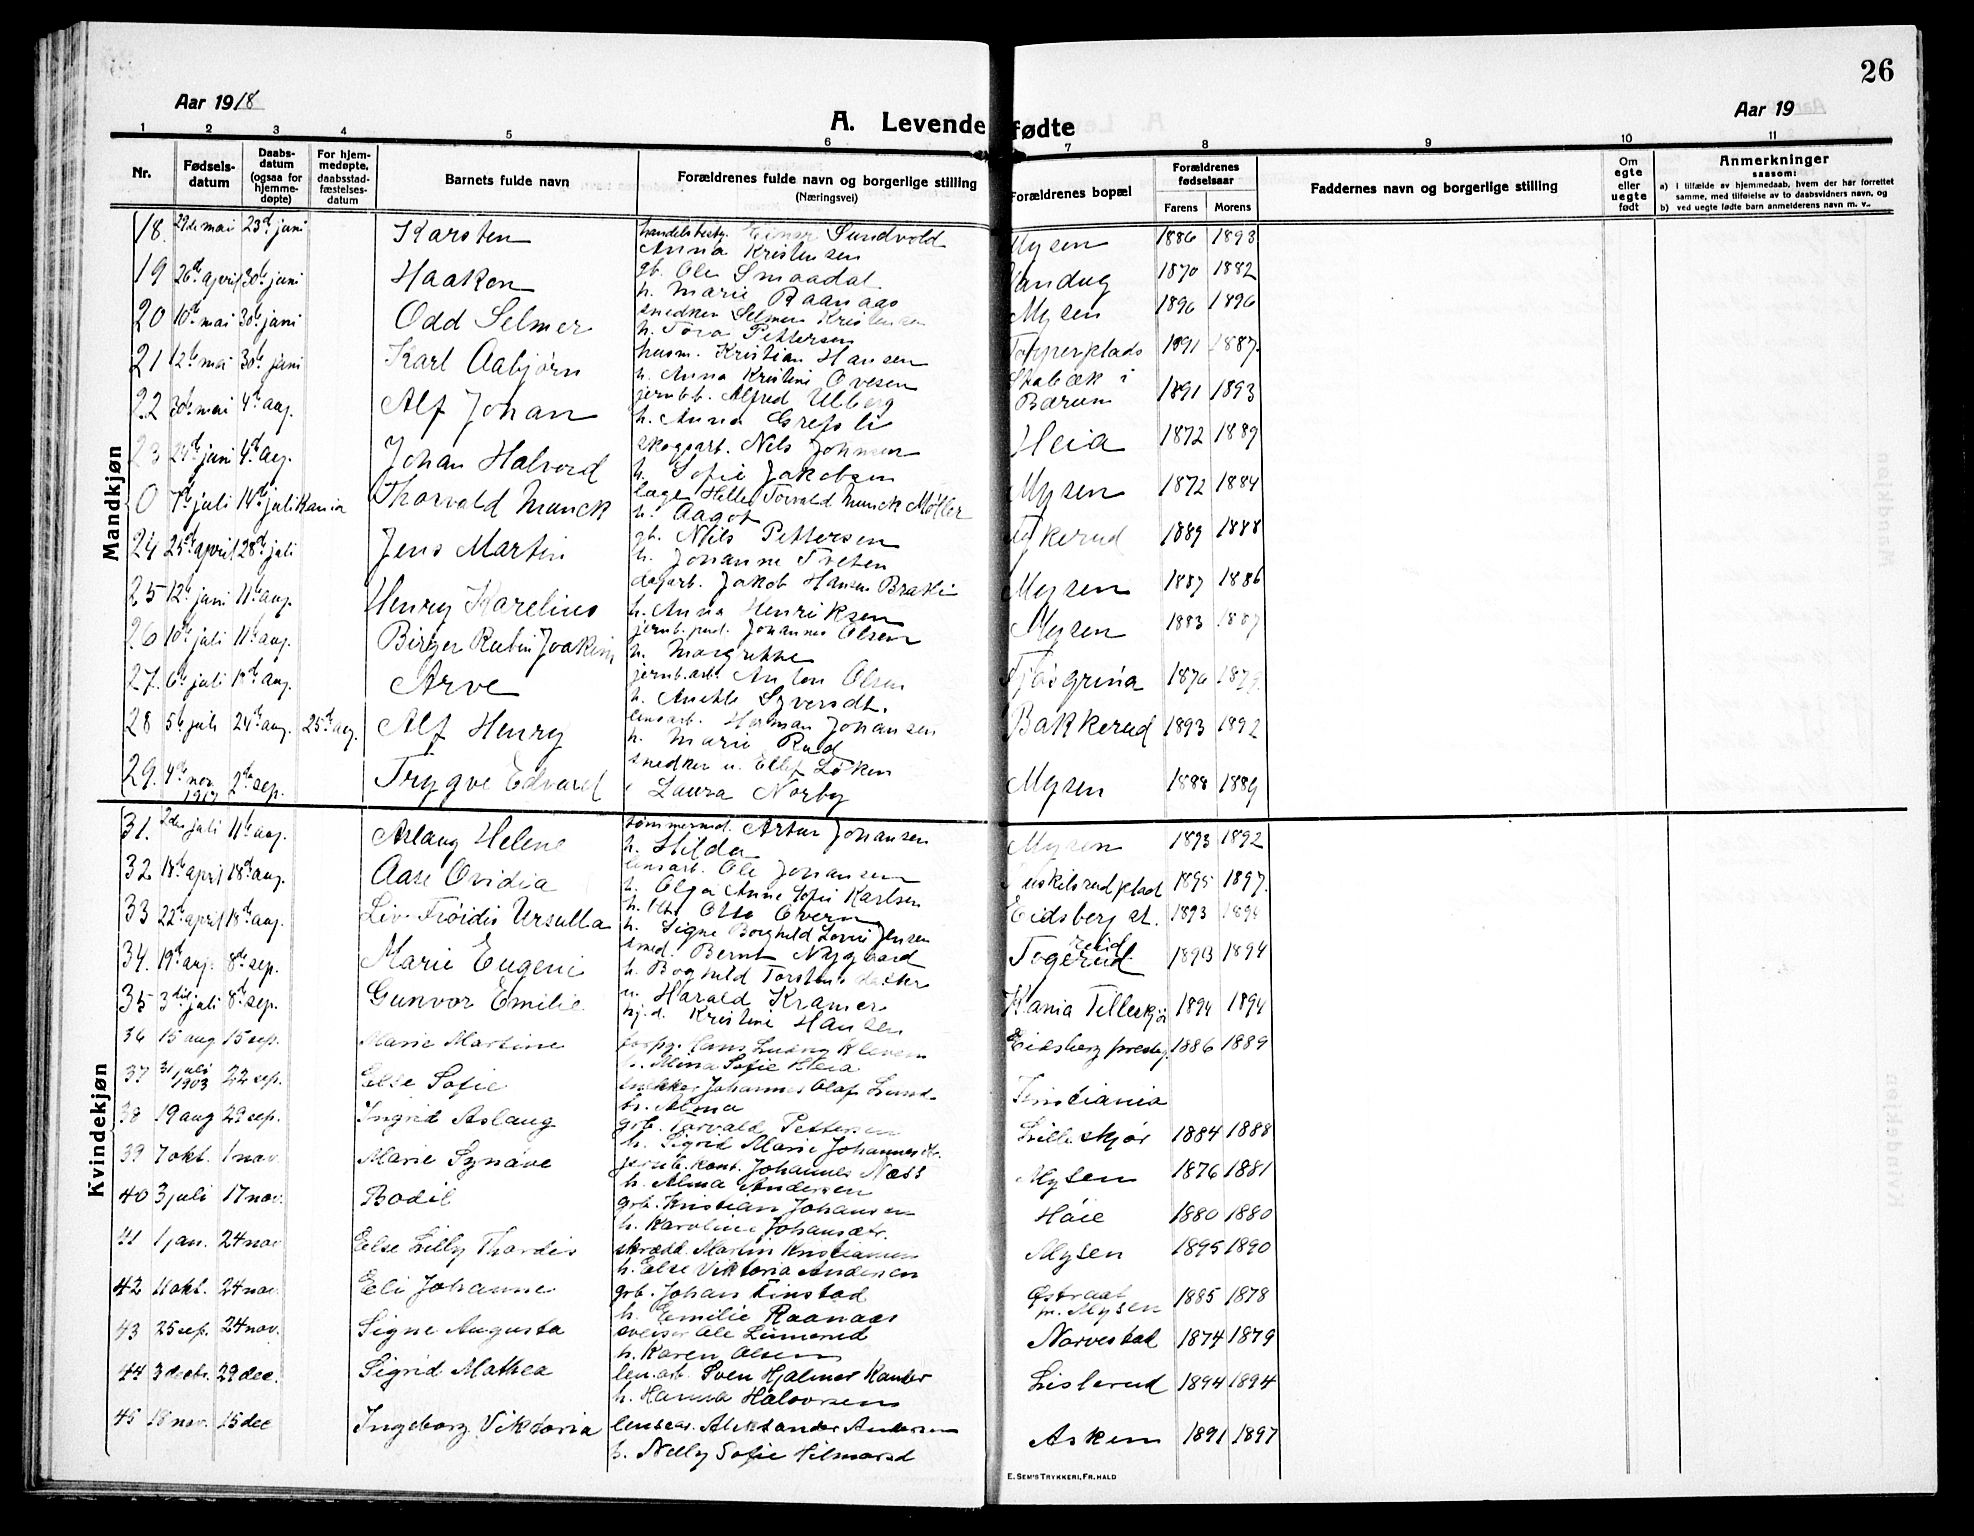 26
Aar 1918
Aar 19
A. Levende fødte
1 2 3 4 5 6 7 8 9 10 11
Nr.
Fødsels-
datum
Daabs-
datum
(ogsaa for
hjemme-
døpte)
For hjem-
medøpte,
daabsstad-
fæstelses-
datum
Barnets fulde navn
Forældrenes fulde navn og borgerlige stilling
(Næringsvei)
Forældrenes bopæl
Forældrenes
fødselsaar
Farens Morens
Faddernes navn og borgerlige stilling
Om
egte
eller
uegte
født
Anmerkninger
saasom:
a) i tilfælde av hjemmedaab, hvem der har forrettet
samme, med tilføielse av to daabsvidners navn, og
b) ved uegte fødte barn anmelderens navn m. v..
Mandkjøn
18. 29de mai 23de juni Karsten handelsbesty. Einar Sundvold Mysen 1886 1893
Anna Kristensen
19 26de april 30te juni Haakon gb. Ole Smaadal 1870 1882
h. Marie Raanaas
20 10de mai 30te juni Odd Selmer snedker Selmer Kristensen Mysen 1896 1896
h. Tora Pettersen
21 12te mai 30te juni Karl Aabjørn husm. Kristian Hansen 1891 1887.
h. Anna Kristine Ovesen
22 30te mai 4de aug. Alf Johan jernb.b. Alfred Ulberg Stabæk i Bærum 1891 1893
h. Anna Grefsli
23 29de juni 4de aug. Johan Halvord skogsarb. Nils Johnsen Heia 1872 1889
h. Sofie Jakobsen
0 7de juli 14de juli Kania Thorvald Munck læge Helle Torvald Munck Møller Mysen 1872 1884
h. Aagot
24 25de april 28de juli Jens Martin gb. Nils Pettersen 1889 1888
h. Johanne Treten
25 12te juni 11te aug. Henry Karelius dagarb. Jakob Hansen Braki Mysen 1887 1886
h. Anna Henriksen
26 10de juli 11te aug. Birger Rubin Joakim jernb. pud. Johannes Olsen Mysen 1883 1887
h. Margrethe
27. 6te juli 18de aug. Arve jernb.arb. Anton Olsen 1876 1879.
h. Anette Syversdt.
28 5te juli 24de aug. 25de aug. Alf Henry lensarb. Herman Johansen Bakkerud 1893 1892
h. Marie Rud
29. 4de nov. 1917 2de sep. Trygve Edvard snedker u. Ellef Løken Mysen 1888 1889
Laura Norby
Kvindekjøn
31. 2den juli 11te aug. Aslaug Helene tømmermd. Artur Johansen Mysen 1893 1892
h. Hilda
32 18de april 18de aug. Aase Ovidia lensarb. Ole Johansen 1895 1897.
h. Olga Anne Sofie Karlsen
33 22de april 18de aug. Liv Froidis Ursulla Otto Overn Eidsberg st. 1893 1896
h. Signe Borghild Lovise Jensen
34. 19de aug. 8de sep. Marie Eugeni smed. Bernt Nygaard Togerud 1893 1894
h. Boghild Torstensdatter
35 3die juli 8de sep. Gunvor Emilie u. Harald Kramer Kania 1894 1894
hj.d. Kristine Hansen
36 15 aug 15 sep. Marie Martine forpg. Hans Ludvig Kleven Eidsberg presteg. 1886 1889
h. Mina Sofie Heia
37 31 juli 1903 22 sep. Else Sofie snekker Johannes Olaf Lund Kristiania
h. Alma
38 19 aug 29 sep. Ingrid Aslaug grb. Torvald Pettersen Lilleskjør 1884 1888
h. Sigrid Marie Johannesdt.
39 7 okt. 1 nov. Marie Synøve jernb.kont. Johannes Næss Mysen 1876 1881
h. Alma Andersen
40 3 juli 17 nov. Bodil grb. Kristian Johansen Høie 1880 1880
h. Karoline Johansdtr.
41 1 jan. 24 nov Else Lilly Thordis skrædd. Martin Kristiansen Mysen 1895 1890
h. Else Viktoria Andersen
42 11 okt. 24 nov. Eli Johanne grb. Johan Finstad Østraat pr. Mysen 1885 1878
h. Emilie Raanaas
43 25 sep. 24 nov. Signe Augusta sveiser Ole Limerud Narvestad 1874 1879
h. Karen Olsen
44 3 dectr. 29 dec. Sigrid Mathea len.arb. Sven Hjalmar Kander Lislerud 1894 1894
h. Hanna Halvorsen
45 18 nov. 15 dec Ingeborg Viktoria lensear. Aleksander Andersen Askim 1891 1897
h. Nelly SofieIlmarsd
E. SEM'S TRYKKERI, FR.HALD